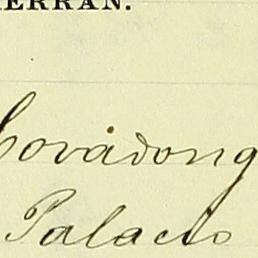 HERRÁN.
Covadong
Palacio